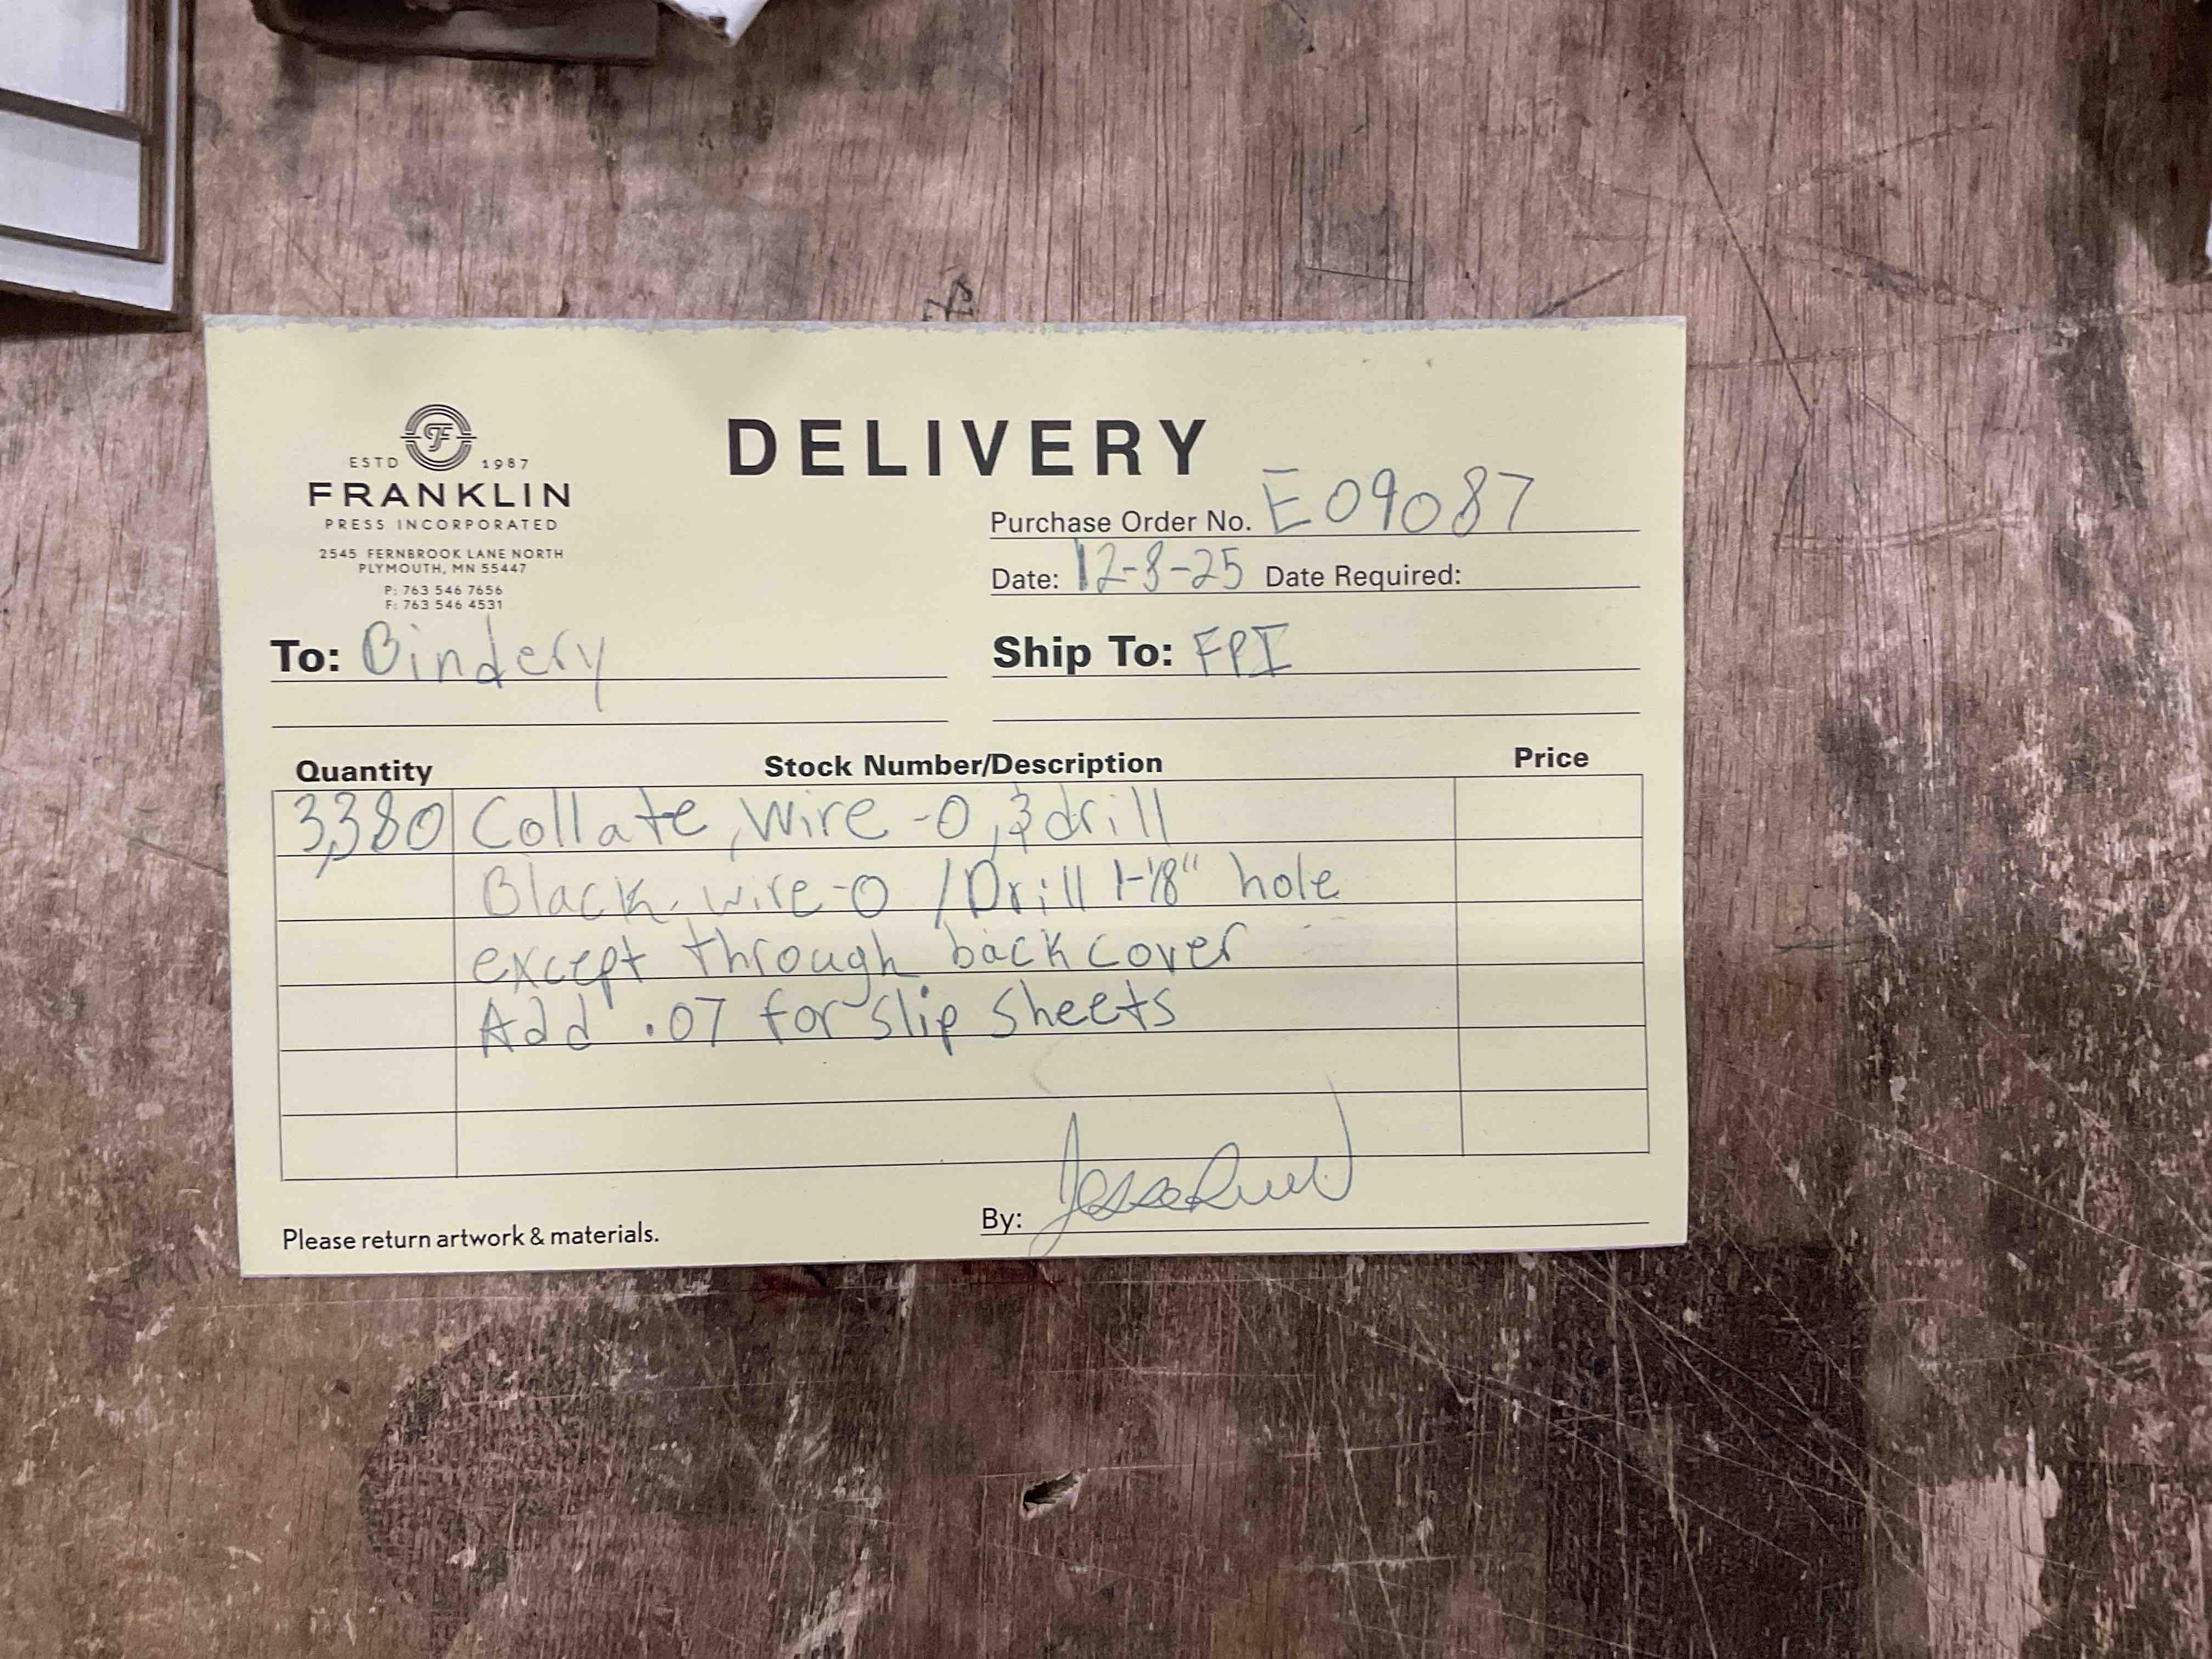 DELIVERY
F
ESTD 1987
FRANKLIN
PRESS INCORPORATED
2545 FERNBROOK LANE NORTH
PLYMOUTH, MN 55447
P: 763 546 7656
F: 763 546 4531
Purchase Order No. E09087
Date: 12-8-25 Date Required:
To: Bindery
Ship To: FPI
Quantity Stock Number/Description Price
3,380 Collate, Wire-O, & drill
Black wire-O / Drill 1-1/8" hole
except through back cover
Add .07 for slip sheets
Please return artwork & materials.
By: Jesse